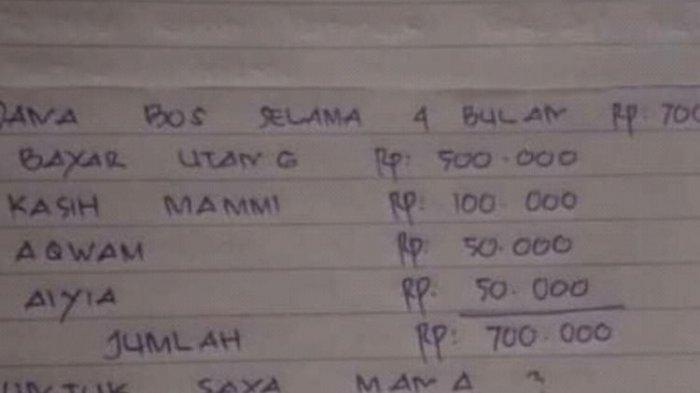 DANA BOS SELAMA 4 BULAN RP: 700
BAYAR UTANG Rp: 500.000
KASIH MAMMI RP: 100.000
AQWAM RP: 50.000
AIYIA RP. 50.000
JUMLAH RP: 700.000
UNTUK SAYA MANA ?